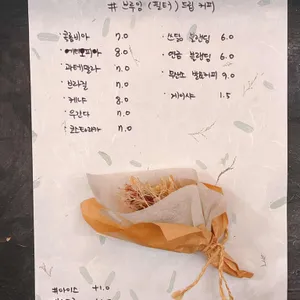 # 브루잉 (필터) 드립 커피
콜롬비아 7.0
에티오피아 8.0
과테말라 7.0
브라질 7.0
케냐 8.0
르완다 7.0
코스타리카 7.0
스텀 블렌딩 6.0
연음 블렌딩 6.0
무산소 발효커피 9.0
게이샤 1.5
#아이스 +1.0